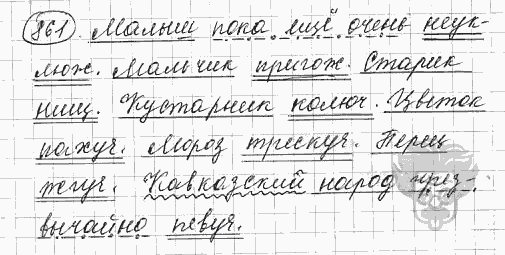 861. Малыш пока ещё очень неук-
люж. Мальчик пригож. Старик
нищ. Кустарник колюч. Цветок
пахуч. Мороз трескуч. Перец
жгуч. Кавказский народ чрез-
вычайно певуч.